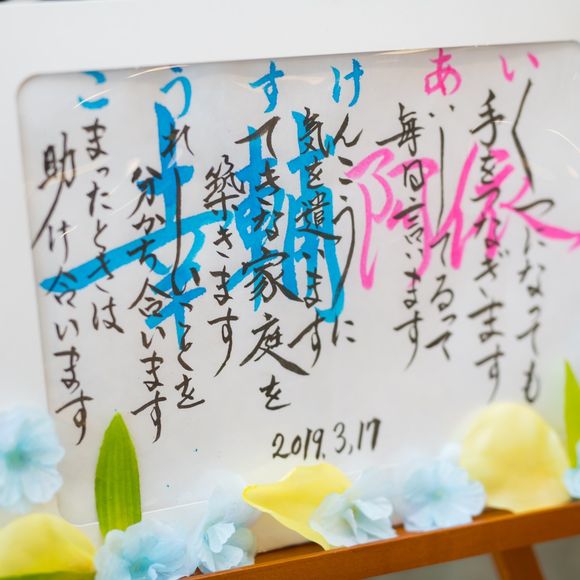 いくつになっても
手をつなぎます
あいしてるって
毎日言います
けんこうに
気を遣います
すてきな家庭を
築きます
うれしいことを
分かち合います
こまったときは
助け合います
幸輔
阿依
2019.3.17